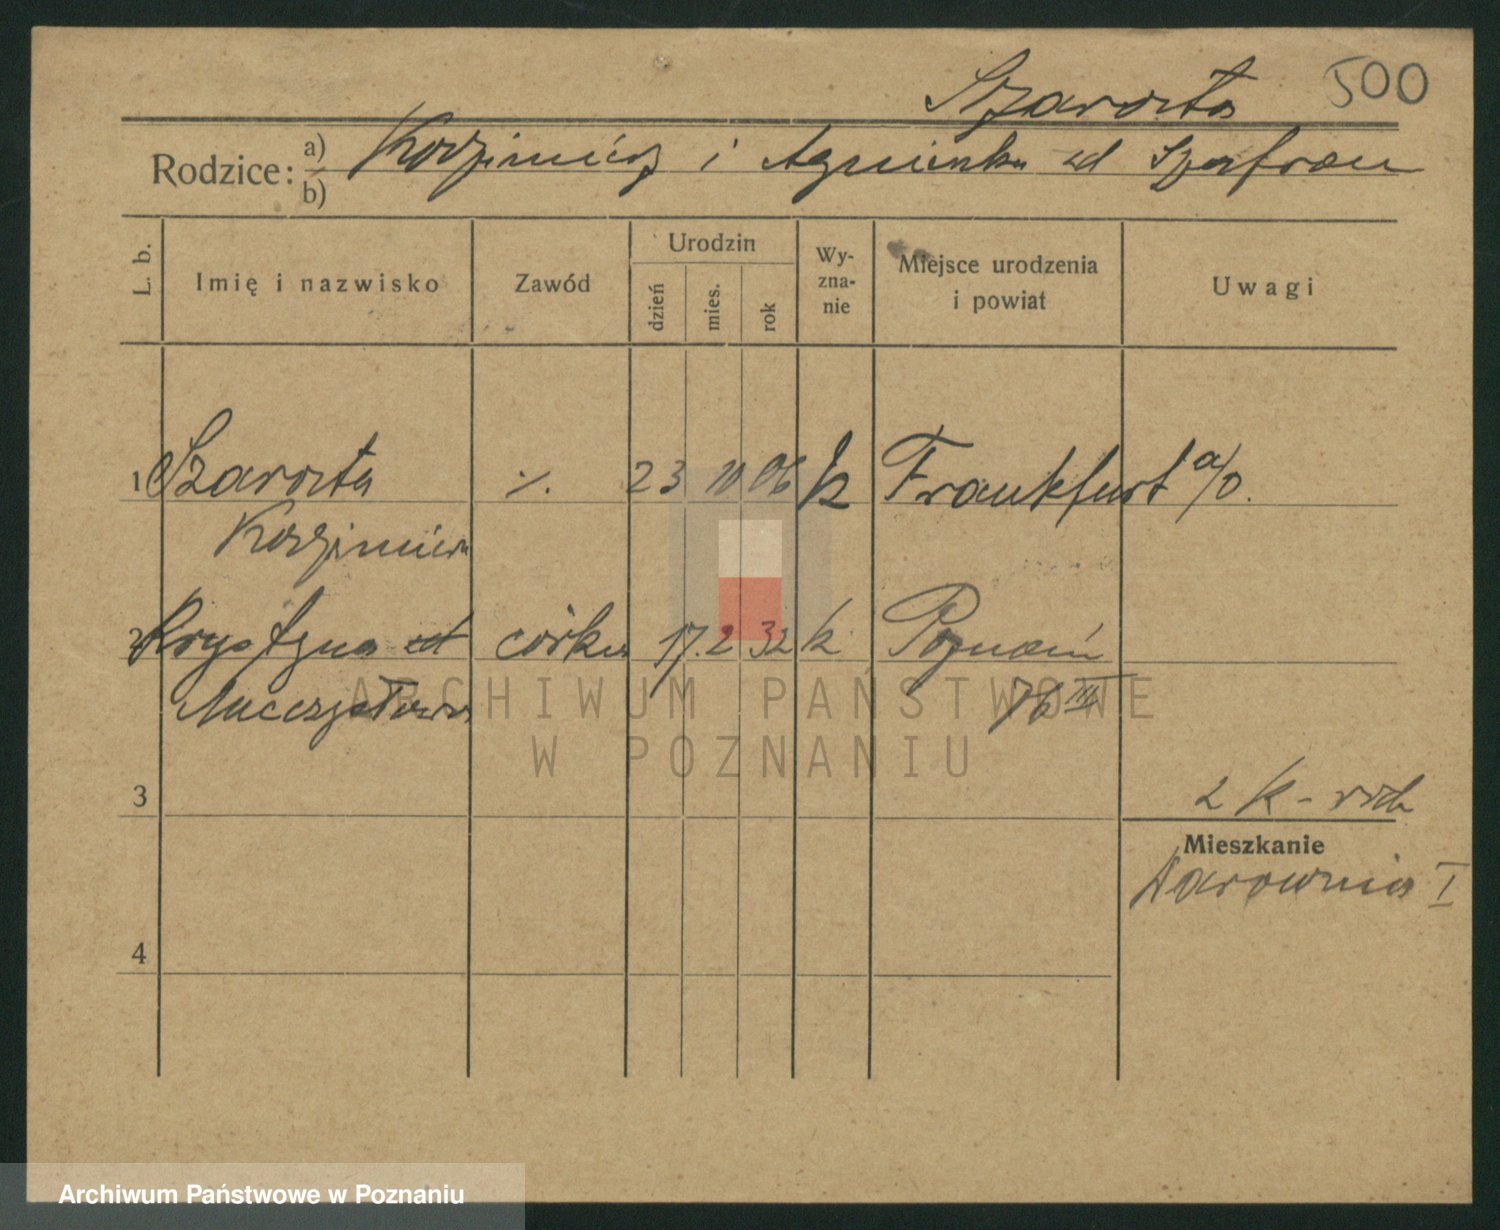 Szarota 500
Rodzice: a) Kazimierz i Agnieszka zd Szafran
b)
L. b. Imię i nazwisko Zawód Urodzin dzień mies. rok Wy-zna-nie Miejsce urodzenia i powiat Uwagi
1 Szarota ./. 23 10 06 k Frankfurt a/O.
Kazimiera
2 Krystyna zd córka 17. 2 32 k Poznań
Mieczysława 76 III
ARCHIWUM PAŃSTWOWE
W POZNANIU
3
2 k -
Mieszkanie
I
4
Archiwum Państwowe w Poznaniu